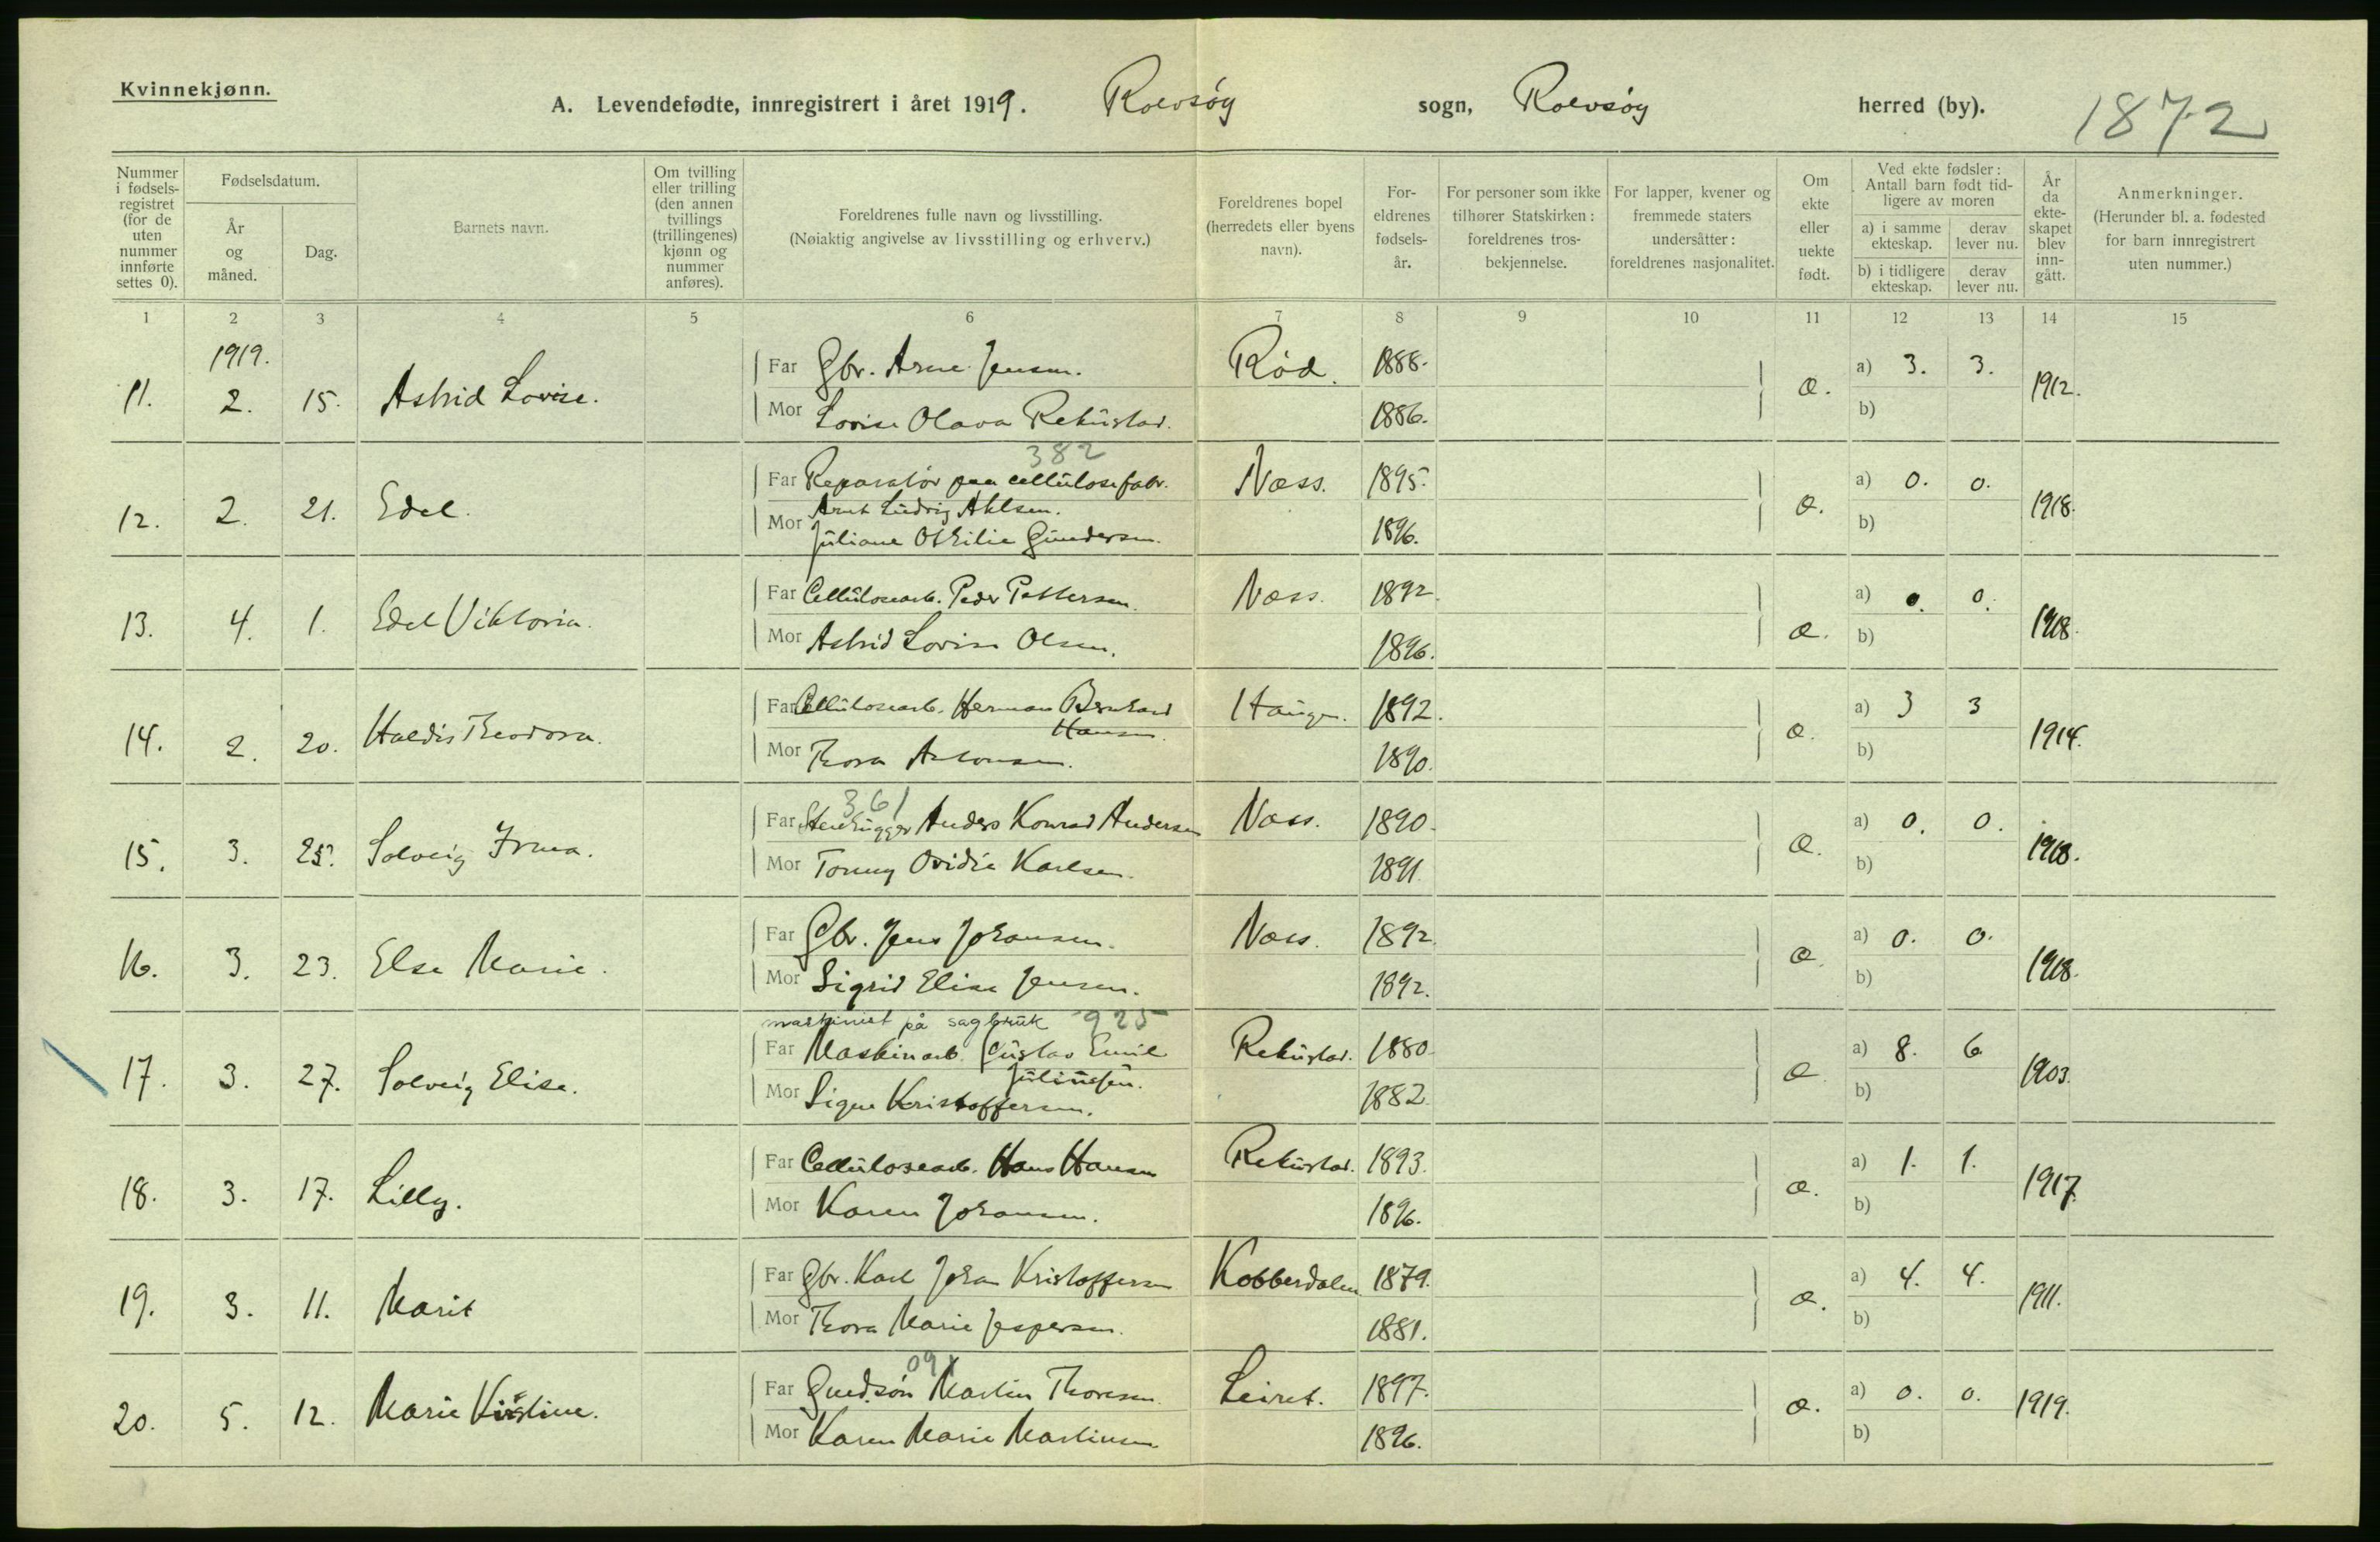 Kvinnekjønn.
A. Levendefødte, innregistrert i året 1919. Rolvsøy sogn, Rolvsøy herred (by). 1872
Nummer i fødsels-registret (for de uten nummer innførte settes 0).
Fødselsdatum.
År og måned.
Dag.
Barnets navn.
Om tvilling eller trilling (den annen tvillings (trillingenes) kjønn og nummer anføres).
Foreldrenes fulle navn og livsstilling.
(Nøiaktig angivelse av livsstilling og erhverv.)
Foreldrenes bopel (herredets eller byens navn).
For-eldrenes fødsels-år.
For personer som ikke tilhører Statskirken: foreldrenes tros-bekjennelse.
For lapper, kvener og fremmede staters undersåtter: foreldrenes nasjonalitet.
Om ekte eller uekte født.
Ved ekte fødsler: Antall barn født tid-ligere av moren
a) i samme ekteskap.
derav lever nu.
b) i tidligere ekteskap.
derav lever nu.
År da ekte-skapet blev inn-gått.
Anmerkninger.
(Herunder bl. a. fødested for barn innregistrert uten nummer.)
1 2 3 4 5 6 7 8 9 10 11 12 13 14 15
1919.
Far Gbr. Arne Jensen. Rød. 1888. a) 3. 3.
11. 2. 15. Astrid Lovise. æ. 1912.
Mor Lovise Olava Rekustad. 1886. b)
382
Far Reparatør paa cellulosefabr. Næss. 1895. a) 0. 0.
12. 2. 21. Edel. Arnt Ludvig Ahlsen. æ. 1918.
Mor Juliane Othilie Gundersen. 1896. b)
Far Cellulosearb. Peder Pettersen. Næss. 1892. a) 0. 0.
13. 4. 1. Edel Viktoria. æ. 1918.
Mor Astrid Lovise Olsen. 1896. b)
Far Cellulosearb. Herman Bernhard Hansen. Haugen. 1892. a) 3 3
14. 2. 20. Haldis Theodora. æ. 1914.
Mor Thora Antonsen. 1890. b)
361
Far Stenhugger Anders Konrad Andersen Næss. 1890. a) 0. 0.
15. 3. 25. Solveig Irma. æ. 1918.
Mor Tonny Ovidia Karlsen. 1891. b)
Far Gbr. Jens Johansen. Næss. 1892. a) 0. 0.
16. 3. 23. Else Marie. æ. 1918.
Mor Sigrid Elise Jensen. 1892. b)
maskinist på sagbruk 925
Far Maskinarb. Gustav Emil Juliussen. Rekustad. 1880. a) 8. 6
17. 3. 27. Solveig Elise. æ. 1903.
Mor Signe Kristoffersen. 1882. b)
Far Cellulosearb. Hans Hansen Rekustad. 1893. a) 1. 1.
18. 3. 17. Lilly. æ. 1917.
Mor Karen Johansen. 1896. b)
Far Gbr. Karl Johan Kristoffersen Kobberdalen 1879. a) 4. 4.
19. 3. 11. Marit æ. 1911.
Mor Thora Marie Jespersen. 1881. b)
091
Far Gaardsøn Martin Thoresen. Leiret. 1897. a) 0. 0.
20. 5. 12. Marie Kirstine. æ. 1919.
Mor Karen Marie Martinsen 1896. b)